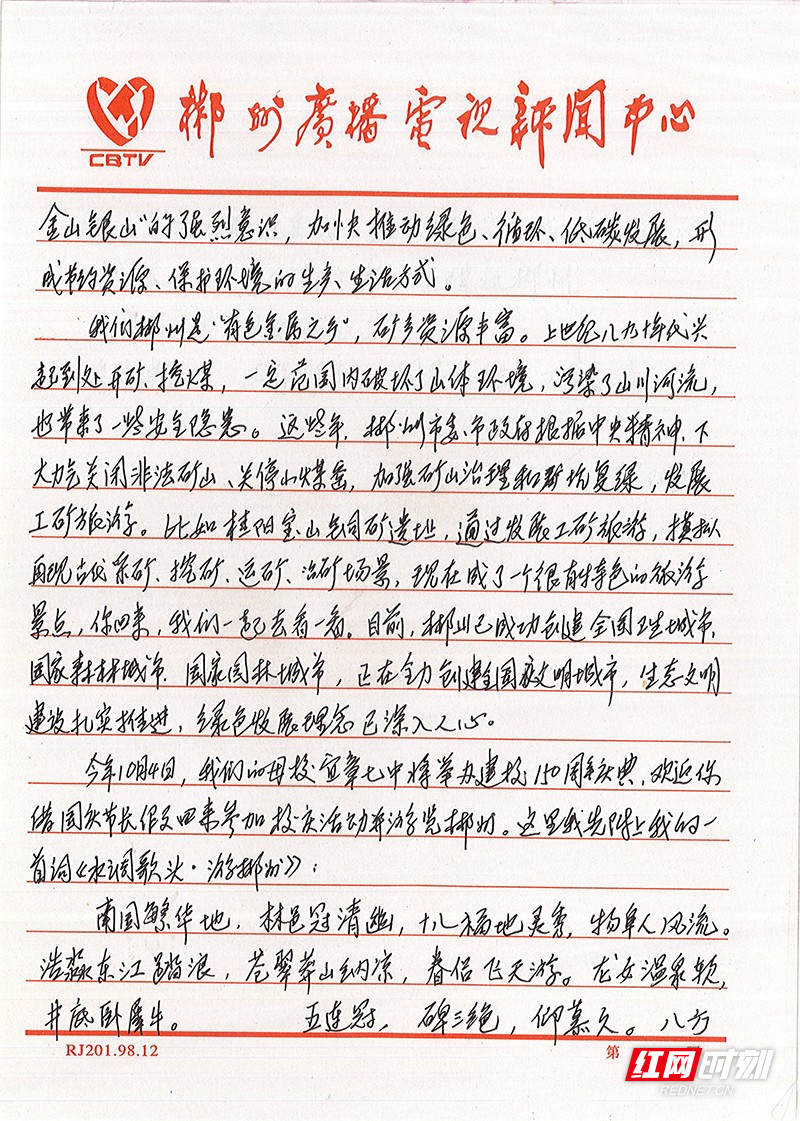 CBTV
郴州廣播電視新聞中心
金山银山"的强烈意识，加快推动绿色、循环、低碳发展，形
成节约资源、保护环境的生产、生活方式。
我们郴州是"有色金属之乡"，矿产资源丰富。上世纪八九十年代兴
起到处开矿、挖煤，一定范围内破坏了山体环境，污染了山川河流，
也带来了一些安全隐患。这些年，郴州市委、市政府根据中央精神，下
大力气关闭非法矿山、关停小煤窑，加强矿山治理和矿坑复绿，发展
工矿旅游。比如桂阳宝山铜矿遗址，通过发展工矿旅游，模拟
再现古代采矿、挖矿、运矿、冶矿场景，现在成了一个很有特色的旅游
景点，你回来，我们一起去看一看。目前，郴州已成功创建全国卫生城市、
国家森林城市、国家园林城市，正在全力创建全国文明城市，生态文明
建设扎实推进，绿色发展理念已深入人心。
今年10月4日，我们的母校宜章七中将举办建校150周年庆典，欢迎你
借国庆节长假回来参加校庆活动并游览郴州。这里我先附上我的一
首词《水调歌头·游郴州》：
南国繁华地，林邑冠清幽，十八福地灵秀，物阜人风流。
浩淼东江踏浪，苍翠莽山纳凉，眷侣飞天游。龙女温泉软，
井底卧犀牛。 五连冠，碑三绝，仰慕久。八方
RJ201.98.12
第
红网时刻
REDNET.CN